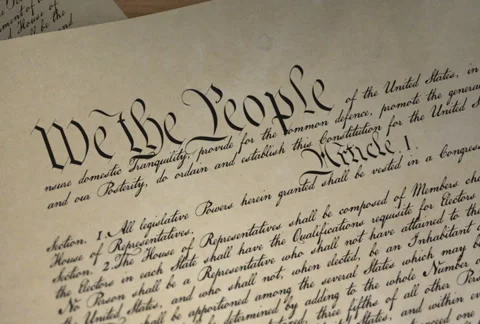 House of
be the
We the People of the United States, in
nsure domestic Tranquility, provide for the common defence, promote the genera
and our Posterity, do ordain and establish this Constitution for the United St
Article. I.
Section. 1. All legislative Powers herein granted shall be vested in a Congres
House of Representatives.
Section. 2. The House of Representatives shall be composed of Members cho
the Electors in each State shall have the Qualifications requisite for Electors
No Person shall be a Representative who shall not have attained to the
United States, and who shall not, when elected, be an Inhabitant of
shall be apportioned among the several States which may be
determined by adding to the whole Number o
three fifths of all other Perso
and within ev
exceed one